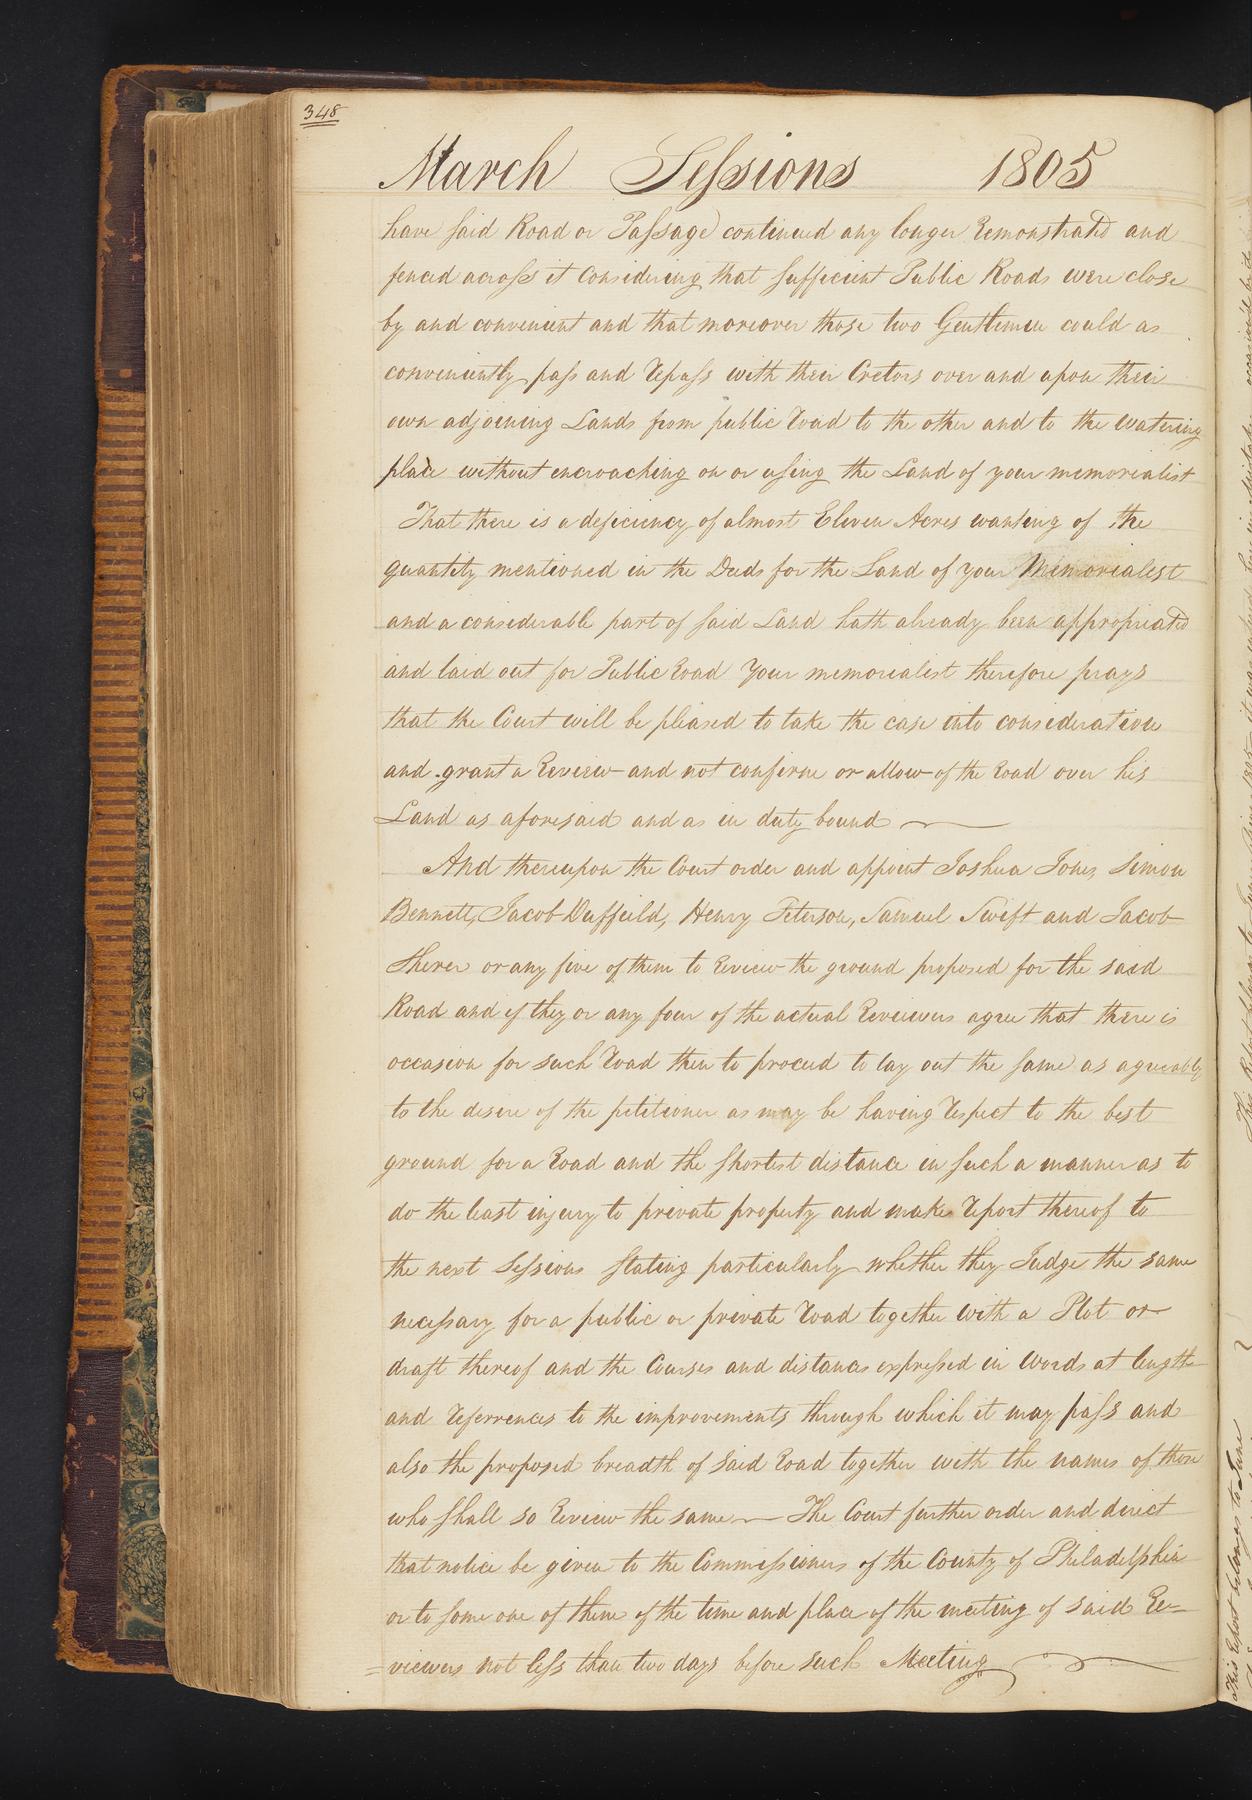 348
March Sessions 1805
have said Road or Passage continued any longer Remonstrated and
fenced across it Considering that sufficient Public Roads were close
by and convenient and that moreover those two Gentlemen could as
conveniently pass and Repass with their Cretors over and upon their
own adjoining Lands from public Road to the other and to the watering
place without encroaching on or using the Land of your memorialist
That there is a deficiency of almost Eleven Acres wanting of the
quantity mentioned in the Deeds for the Land of your Memorialist
and a considerable part of said Land hath already been appropriated
and laid out for Public Road Your memorialist therefore prays
that the Court will be pleased to take the case into consideration
and grant a Review and not confirm or allow of the Road over his
Land as aforesaid and as in duty bound
And thereupon the Court order and appoint Joshua Jones, Simon
Bennett, Jacob Duffeild, Henry Peterson, Samuel Swift and Jacob
Sherer or any five of them to Review the ground proposed for the said
Road and if they or any four of the actual Reveiwers agree that there is
occasion for such Road then to proceed to lay out the same as agreeably
to the desire of the petitioner as may be having Respect to the best
ground for a Road and the shortest distance in such a manner as to
do the least injury to private property and make Report thereof to
the next Sessions stating particularly whether they Judge the same
necessary for a public or private Road together with a Plot or
draft thereof and the Courses and distances expressed in Words at length
and Referrences to the improvements through which it may pass and
also the proposed breadth of said Road together with the names of those
who shall so Review the same — The Court further order and direct
that notice be given to the Commissioners of the County of Philadelphia
or to some one of them of the time and place of the meeting of said Re=
=viewers not less than two days before such Meeting
This Report belongs to June